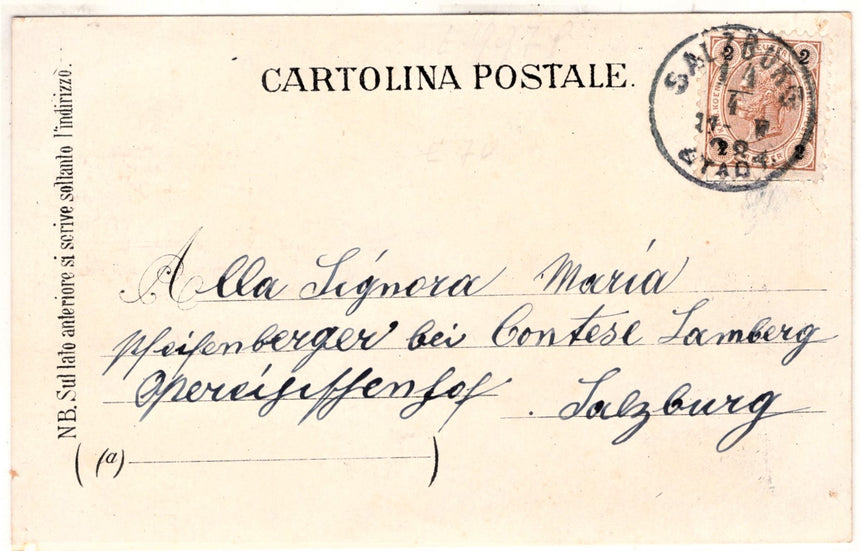 CARTOLINA POSTALE.
SALZBURG
2 2
4
17- F
2 2
STADT.
NB. Sul lato anteriore si scrive soltanto l'indirizzo.
Alla Signora Maria
Pfeifenberger bei Contese Lamberg
Salzburg
(a)